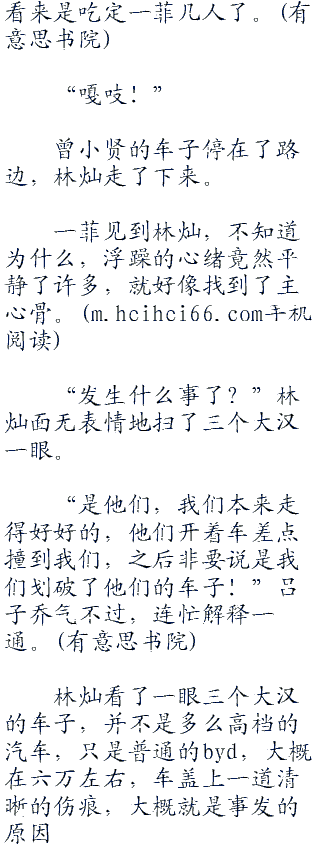 看来是吃定一菲几人了。(有
意思书院)
“嘎吱！”
曾小贤的车子停在了路
边，林灿走了下来。
一菲见到林灿，不知道
为什么，浮躁的心绪竟然平
静了许多，就好像找到了主
心骨。(m.hcihci66.com手机
阅读)
“发生什么事了？”林
灿面无表情地扫了三个大汉
一眼。
“是他们，我们本来走
得好好的，他们开着车差点
撞到我们，之后非要说是我
们划破了他们的车子！”吕
子乔气不过，连忙解释一
通。(有意思书院)
林灿看了一眼三个大汉
的车子，并不是多么高档的
汽车，只是普通的byd，大概
在六万左右，车盖上一道清
晰的伤痕，大概就是事发的
原因